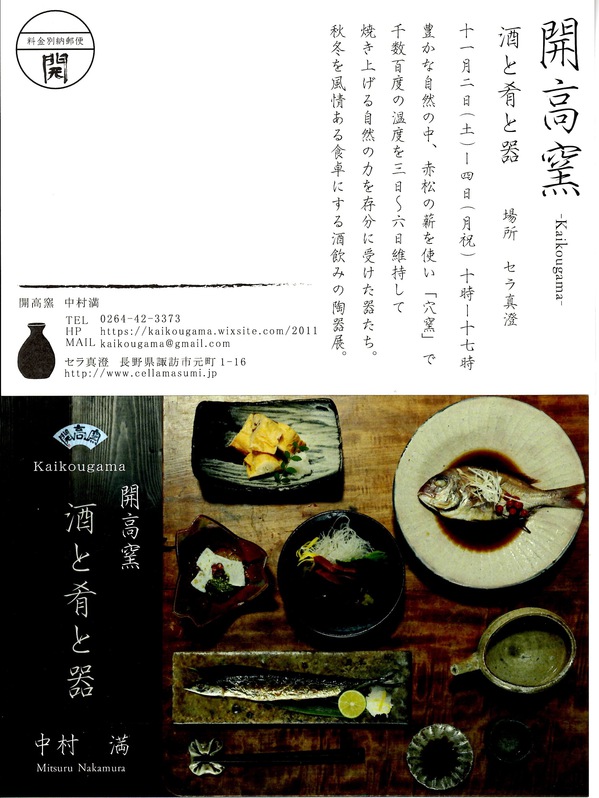 開高窯
-Kaikougama-
酒と肴と器
場所 セラ真澄
十一月二日(土)ー四日(月祝)十時ー十七時
豊かな自然の中、赤松の薪を使い「穴窯」で
千数百度の温度を三日～六日維持して
焼き上げる自然の力を存分に受けた器たち。
秋冬を風情ある食卓にする酒飲みの陶器展。
料金別納郵便
開
開高窯 中村満
TEL 0264-42-3373
HP https://kaikougama.wixsite.com/2011
MAIL kaikougama@gmail.com
セラ真澄 長野県諏訪市元町1-16
http://www.cellamasumi.jp/
開高
Kaikougama
開高窯
酒と肴と器
中村 満
Mitsuru Nakamura